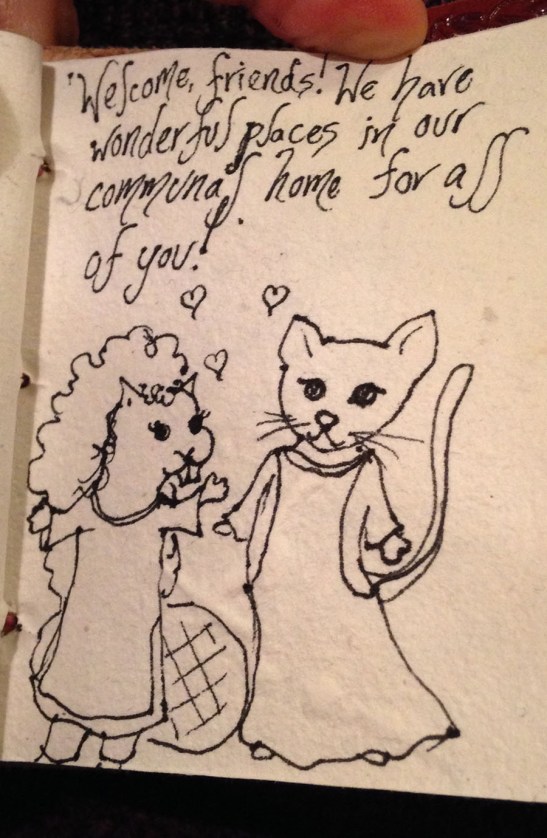 "Welcome, friends! We have
wonderful places in our
communal home for all
of you!